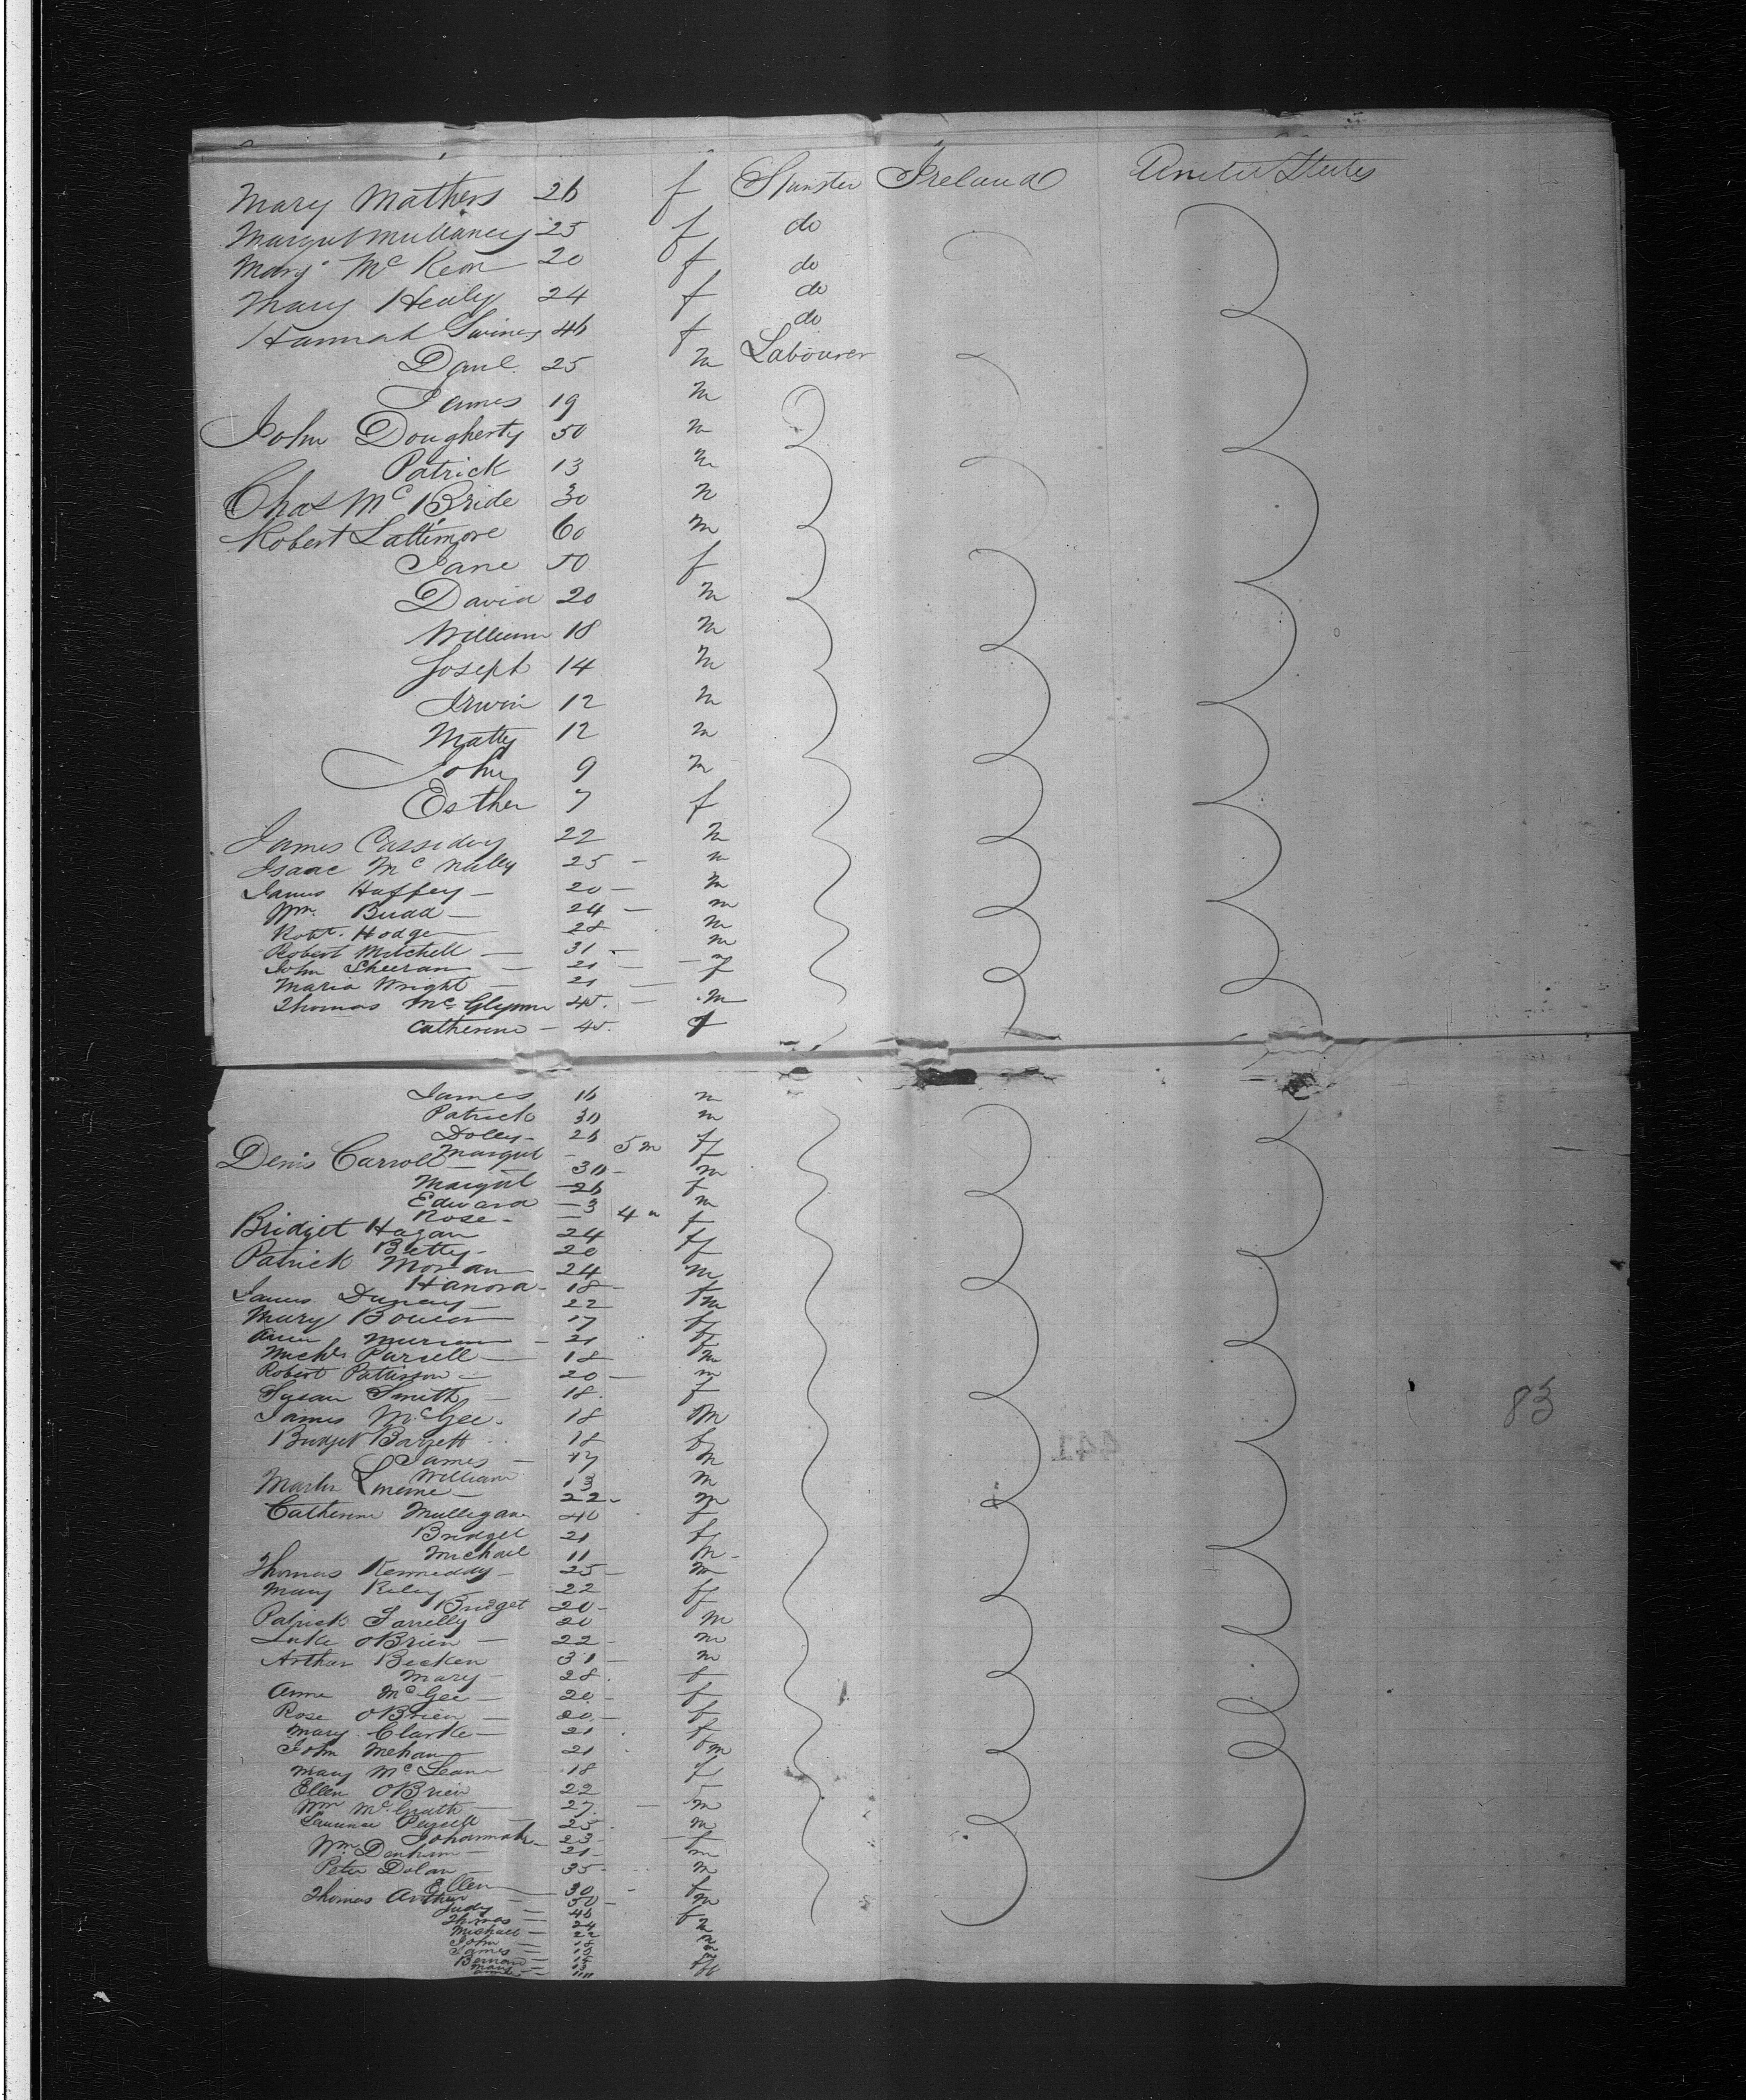 Mary Mathers 26 f Spinster Ireland United States
Margret Mullaney 25 f do
Mary McKeon 20 f do
Mary Healy 24 f do
Hannah Swiney 46 f do
Danl. 25 m Labourer
James 19 m
John Dougherty 50 m
Patrick 13 m
Chas McBride 30 m
Robert Lattimore 60 m
Jane 50 f
David 20 m
William 18 m
Joseph 14 m
Irwin 12 m
Matty 12 m
John 9 m
Esther 7 f
James Cassidy 22 m
Isaac Mc Nulty 25 - m
James Haffey - 20 - m
Wm. Budd - 24 - m
Robt. Hodge 28 m
Robert Mitchell - 31 - m
John Sheeran - 21 -
Maria Wright - 21 - f
Thomas McGlynn 45. - m
Catherine - 45. f
James 16 m
Patrick 30 m
Dolly - 26 f
Margret - 5 m f
Denis Carroll - 30 - m
Margret - 26 f
Edward - 3 m
Rose - 4 " f
Bridget Hagan 24 f
Betty - 20 f
Patrick Moran 24 m
Hanora - 18 - f
James 22 m
Mary 17 f
- 21 f
Michl. Pursell - 18 m
Robert Pattisson - 20 - m
Susan Smith - 18. f
James McGee. 18 m
Bridget Barrett 18 f
James - 17 m
William 13 m
Martin 22 - m
Catherine Mulligan 40 f
Bridget 21 f
Michael 11 m -
Thomas Kenneddy - 25 - m
Mary Riley - 22 f
Bridget 20 - f
Patrick Farrelly 20 m
Luke OBrien - 22 - m
Arthur 31 - m
Mary - 28. f
Anne McGee - 20. - f
Rose OBrien - 20. - f
Mary Clarke - 21 f
John Mehan 21 m
Mary McLean 18 f
Ellen OBrien 22 f
Wm McGrath - 27. - m
Laurence Pursell - 25. m
Johannah - 23 - f
Wm. Denham - 21 - m
Peter Dolan - 35 - m
Ellen - 30 - f
Thomas Arthur - 50 - m
Judy - 46 f
Thomas - 24 m
Michael - 22 m
John - 18 m
James - m
Bernard -
Mary - 13
83
441